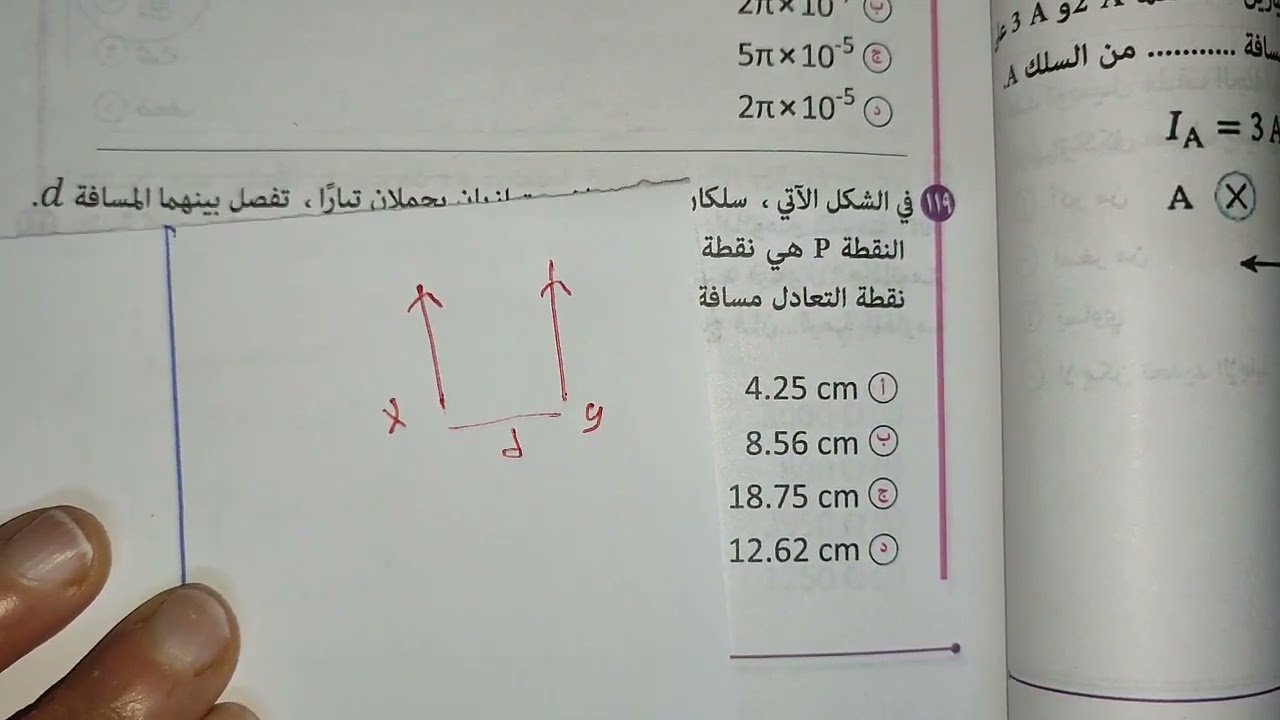 5π×10⁻⁵ ج
2π×10⁻⁵ د
١١٩ في الشكل الآتي ، سلكان يحملان تيارًا ، تفصل بينهما المسافة d.
النقطة P هي نقطة
نقطة التعادل مسافة
4.25 cm أ
8.56 cm ب
18.75 cm ج
12.62 cm د
X y
d
3 A و 2 A
من السلك A.
I_A = 3 A
A X